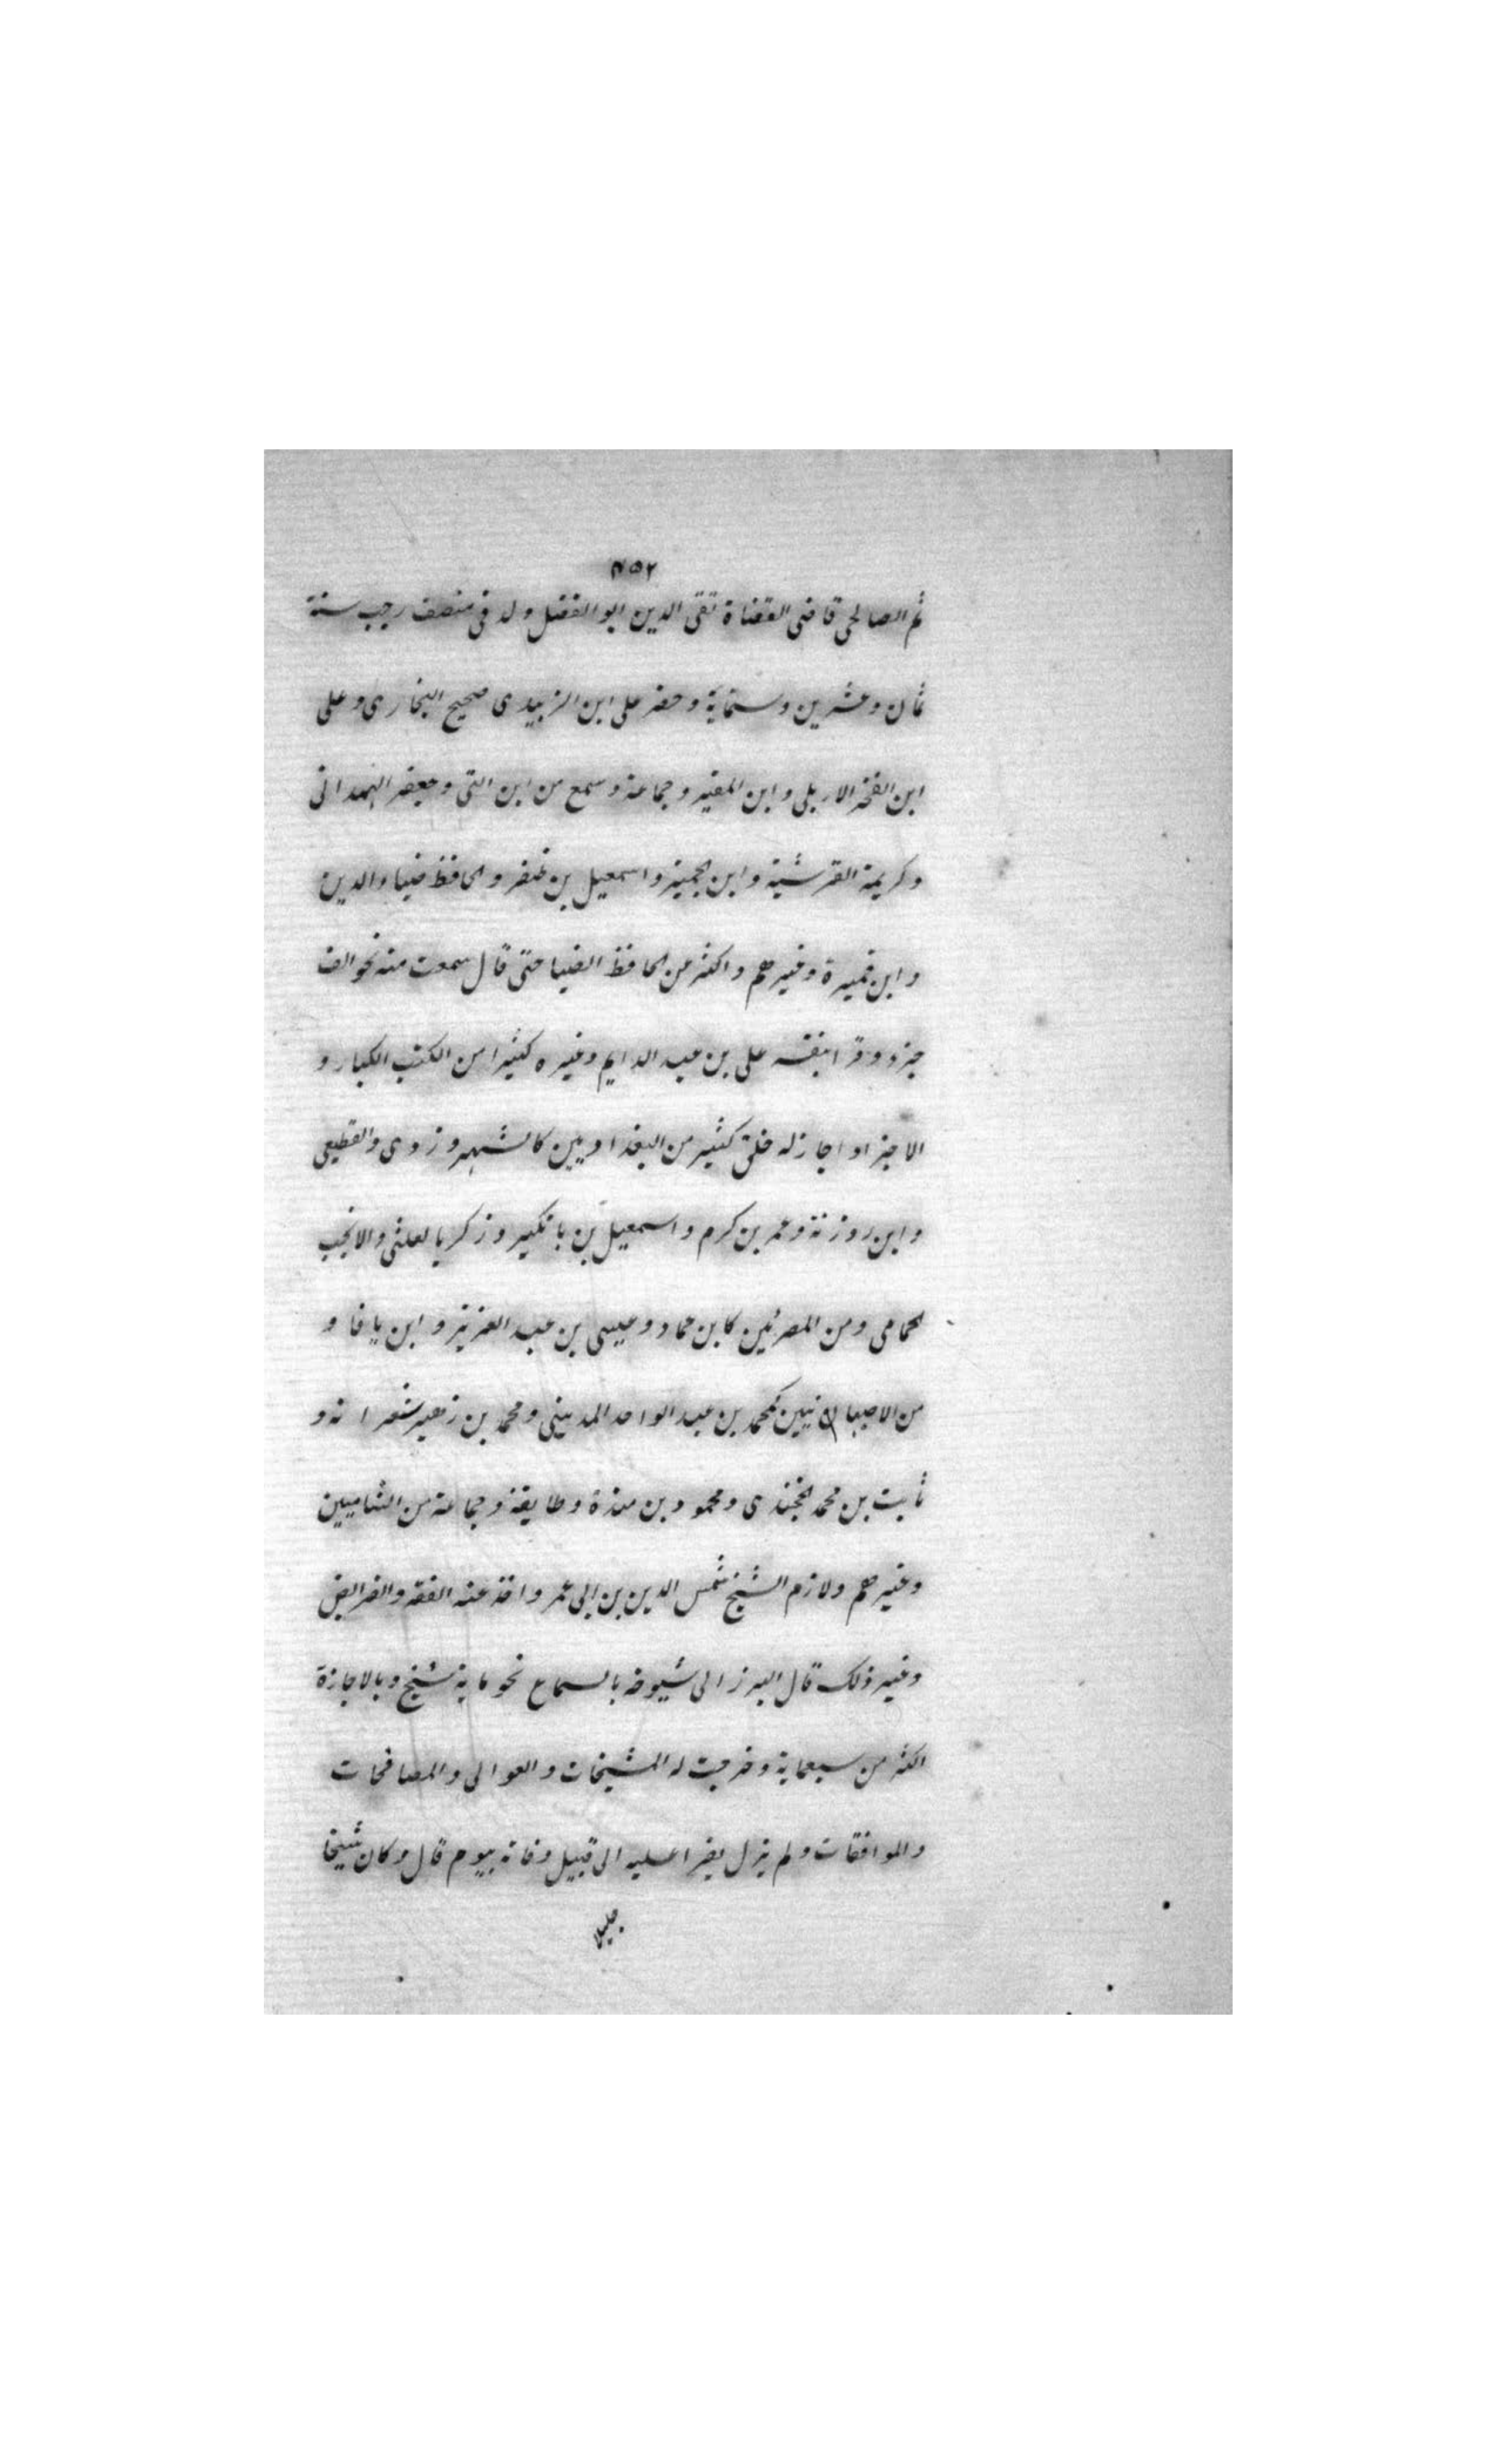 ٧٥٢
ثم الصالحى قاضى القضاة تقى الدين ابو الفضل ولد فى منصف رجب سنة
ثمان وعشرين وستماية وحضر على ابن الزبيدى صحيح البخارى وعلى
ابن الفخر الاربلى وابن المقير وجماعة وسمع من ابن التى وجعفر الهمدانى
وكريمة القرشية وابن الجميز واسمعيل بن ظفر والحافظ ضياء الدين
وابن قميرة وغيرهم واكثر من الحافظ الضيا حتى قال سمعت منه نحو الف
جزء وقرا بنفسه على بن عبد الدايم وغيره كثيرا من الكتب الكبار و
الاجزاء واجاز له خلق كثير من البغداديين كالشهروزدى والقطيعى
وابن روزنة وعمر بن كرم واسمعيل بن باتكير وزكريا لعلثى والانجب
لحمامى ومن المصريين كابن عماد وعيسى بن عبد العزيز وابن باقا و
من الاصبهانيين كمحمد بن عبد الواحد المدينى ومحمد بن زهير شعرانه و
ثابت بن محمد الخجندى ومحمود بن مندة وطايفة وجماعة من الشاميين
وغيرهم ولازم الشيخ شمس الدين بن ابى عمر واخذ عنه الفقه والفرايض
وغير ذلك قال البرزالى شيوخه بالسماع نحو ماية شيخ وبالاجازة
اكثر من سبعماية وخرجت له المشيخات والعوالى والمصافحات
والموافقات ولم يزل يقرا عليه الى قبيل وفاته بيوم قال وكان شيخا
جليلا